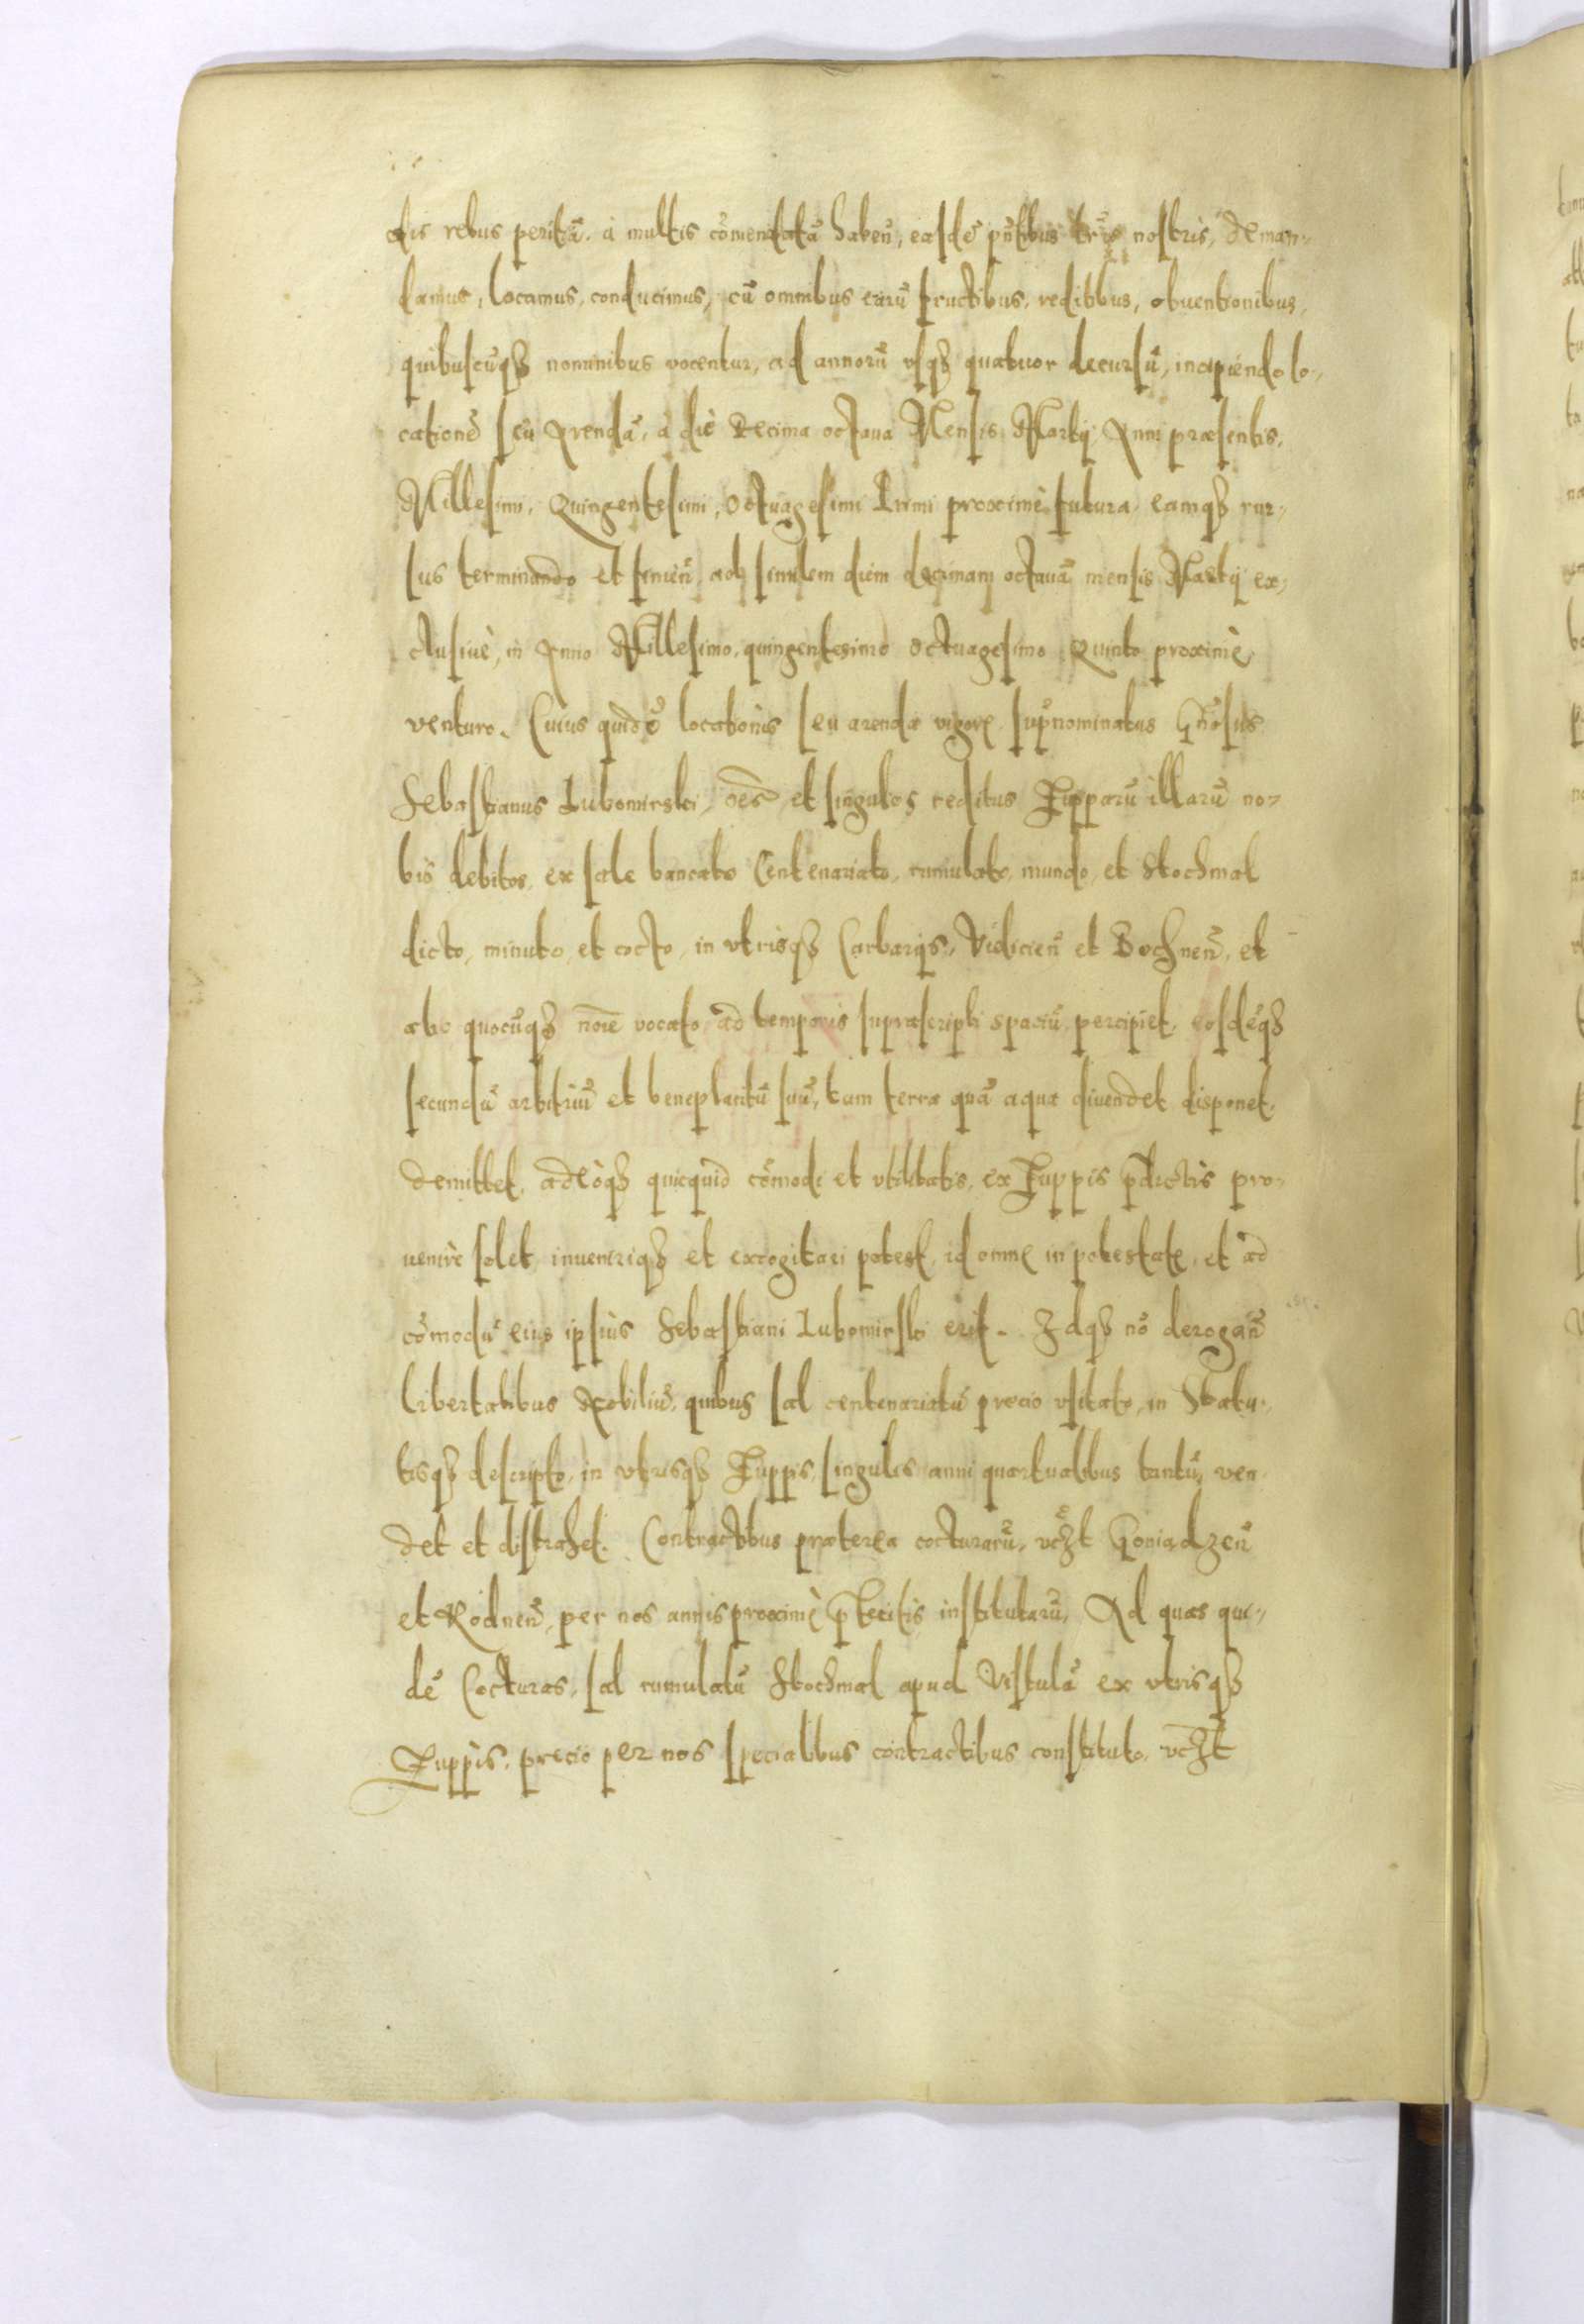 dis rebus peritā. a multis cōmendatā habeñ, easdē pñtibus lrīs nostris, deman-
damus, locamus, conducimus, cū omnibus earū fructibus, reditibus, obuentionibus,
quibuscūq₃ nominibus vocentur, ad annorū vsq₃ quatuor decursū, incipiendo lo-
cationē seu Arendā, a die decima octaua Mensis Martij Anni præsentis,
Millesimi, Quingentesimi, Octuagesimi Primi proximè futura eamq₃ rur-
sus terminando et finieñ ad similem diem decimam octauā mensis Martij ex-
clusiuè, in Anno Millesimo, quingentesimo Octuagesimo Quinto proximè
venturo. Cuius quidē locationis seu arendæ vigore, supnominatus Gñosus
Sebastianus Lubomirski, oēs et singulos reditus Zupparū illarū no-
bis debitos, ex sale bancato Centenariato, cumulato, mundo, et Stochmal
dicto, minuto, et cocto, in vtrisq₃ Carbarijs, Vielicieñ et Bochneñ, et
alio quocūq₃ noīe vocato, ad temporis suprascripti spaciū, percipiet, eosdēq₃
secundū arbitriū et beneplacitū suū, tam terra quā aqua diuendet disponet,
demittet, adeòq₃ quicquid cōmodi et vtilitatis, ex Zuppis p̄dictis pro-
uenire solet, inueniriq₃ et excogitari potest, id omne in potestate, et ad
cōmodū eius ipsius Sebastiani Lubomirski erit. Idq₃ nō derogañ
libertatibus Nobiliū, quibus sal centenariatū precio vsitato, in Statu-
tisq₃ descripto, in vtrisq₃ Zuppis, singulis anni quartualibus tantū, ven-
det et distrahet. Contractibus præterea cocturarū, vcȝt Goniądzeñ
et Rodneñ, per nos annis proximè p̄teritis institutarū, Ad quas qui-
dē Cocturas, sal cumulatū Stochmal apud Vistulā ex vtrisq₃
Zuppis, precio per nos specialibus contractibus constituto, vcȝt